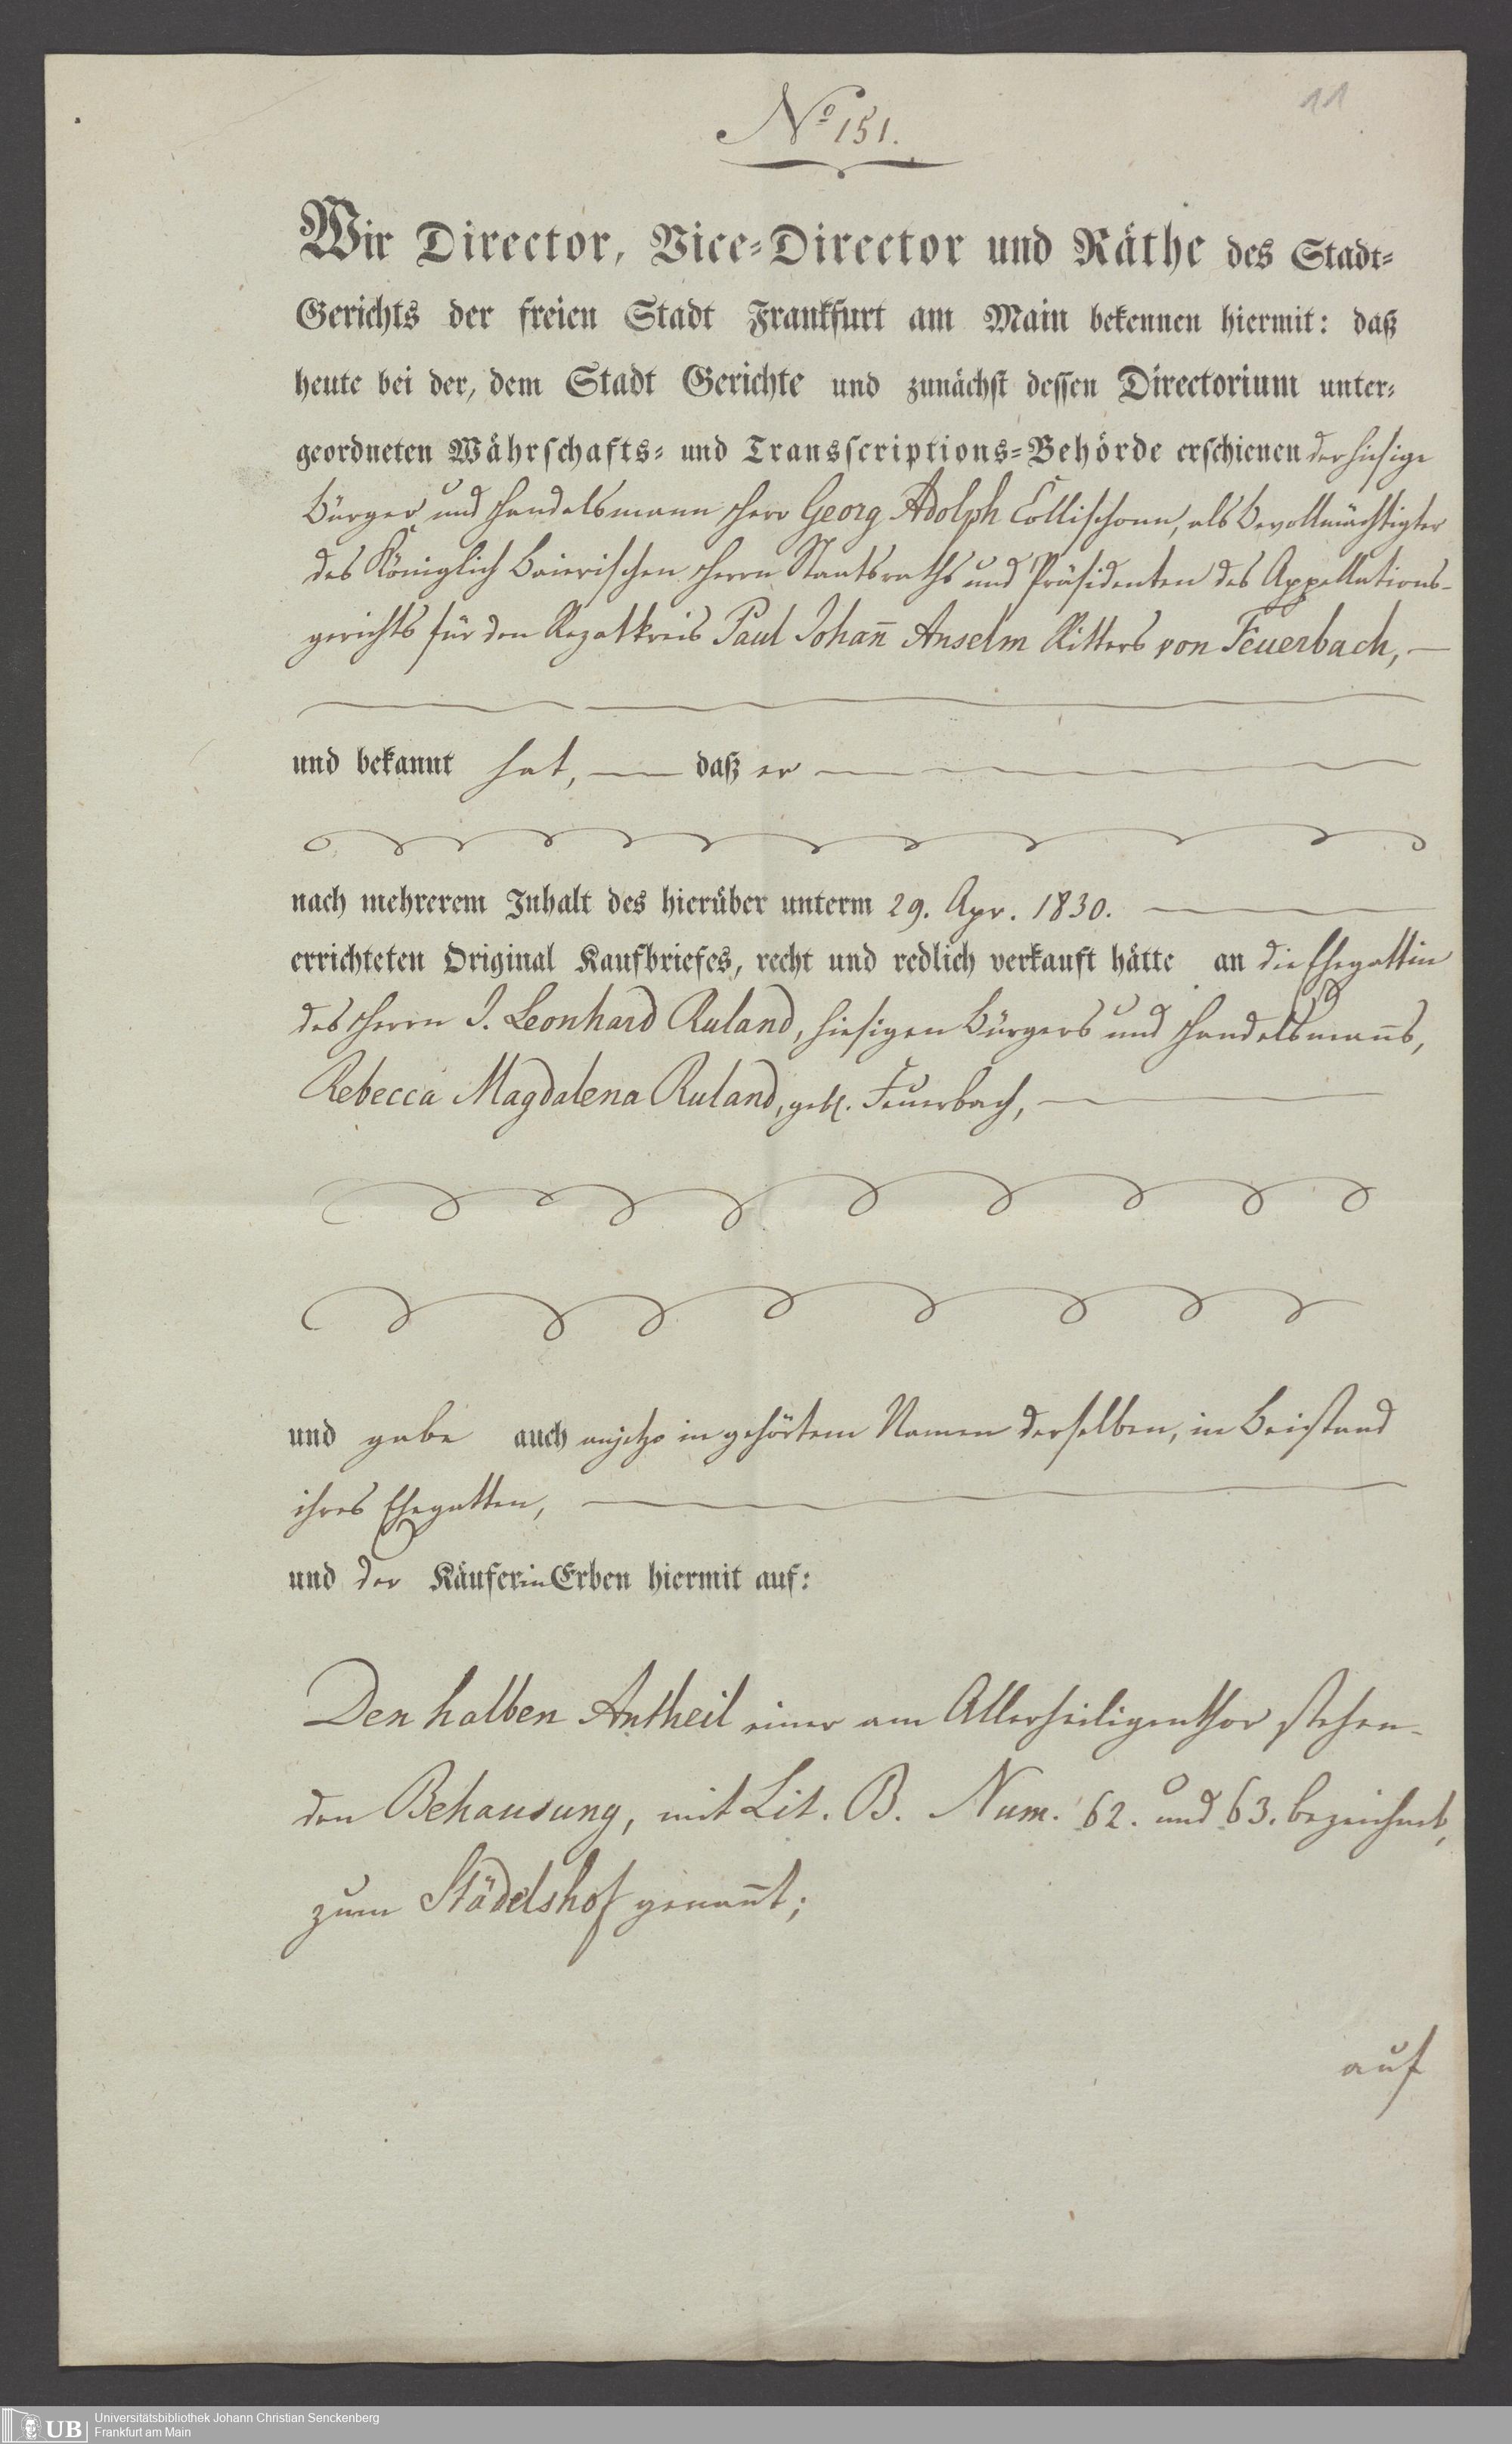 11
No 151.
Wir Director, Vice-Director und Räthe des Stadt-
Gerichts der freien Stadt Frankfurt am Main bekennen hiermit: daß
heute bei der, dem Stadt Gerichte und zunächst dessen Directorium unter-
geordneten Währschafts- und Transscriptions-Behörde erschienen der hiesige
Bürger und Handelsmann Herr Georg Adolph Collischonn, als Bevollmächtigter
des Königlich Baierischen Herrn Staatsraths und Präsidenten des Appellations-
gerichts für den Rezatkreis Paul Johan̄ Anselm Ritters von Feuerbach, —
und bekannt hat, — daß er —
nach mehrerem Inhalt des hierüber unterm 29. Apr. 1830. —
errichteten Original Kaufbriefes, recht und redlich verkauft hätte an die Ehegattin
des Herrn J. Leonhard Ruland, hiesigen Bürgers und Handelsman̄s,
Rebecca Magdalena Ruland, geb. Feuerbach, —
und gabe auch anjetzo in gehörtem Namen derselben, in Beistand
ihres Ehegatten, —
und der Käuferin Erben hiermit auf:
Den halben Antheil einer am Allerheiligenthor stehen-
den Behausung, mit Lit. B. Num. 62. und 63. bezeichnet,
zum Städelshof genan̄t;
auf
UB
Universitätsbibliothek Johann Christian Senckenberg
Frankfurt am Main